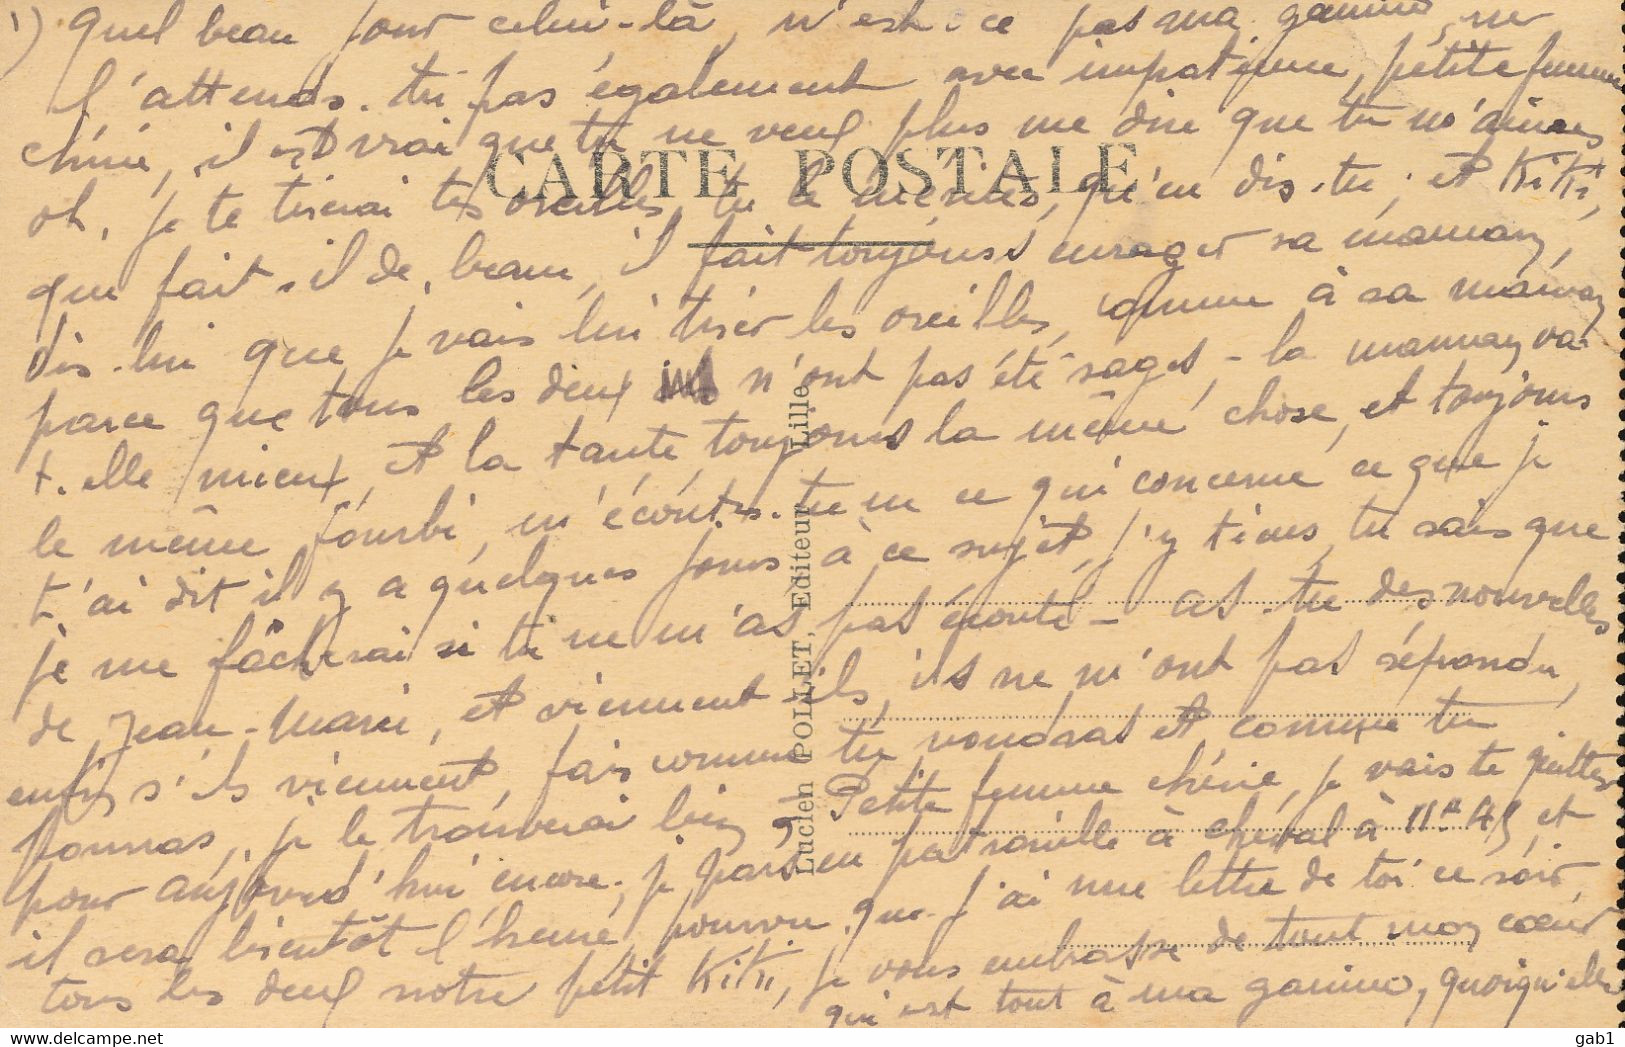 1) Quel beau jour celui-là, n'est-ce pas ma gamine, ne
l'attends-tu pas également avec impatience, petite femme
chérie, il est vrai que tu ne veux plus me dire que tu m'aimes
CARTE POSTALE
oh, je te tirerai tes oreilles, tu le mérites, qu'en dis-tu, et Kiki,
que fait-il de beau, il fait toujours enrager sa maman,
dis-lui que je vais lui tirer les oreilles, comme à sa maman
parce que tous les deux n'ont pas été sages, - la maman va-
t-elle mieux, et la tante toujours la même chose, et toujours
le même fourbi, m'écoutes-tu en ce qui concerne ce que je
t'ai dit il y a quelques jours à ce sujet, j'y tiens, tu sais que
je me fâcherai si tu ne m'as pas écouté - as-tu des nouvelles
de Jean-Marie, et viennent-ils, ils ne m'ont pas répondu,
enfin s'ils viennent, fais comme tu voudras et comme tu
pourras, je le trouverai bien, - Petite femme chérie, je vais te quitter
pour aujourd'hui encore, je pars en patrouille à cheval à 11h45, et
il sera bientôt l'heure, pourvu que j'ai une lettre de toi ce soir,
tous les deux notre petit Kiki, je vous embrasse de tout mon cœur
qui est tout à ma gamine, quoiqu'elle
Lucien POLLET, Editeur, Lille
gab1